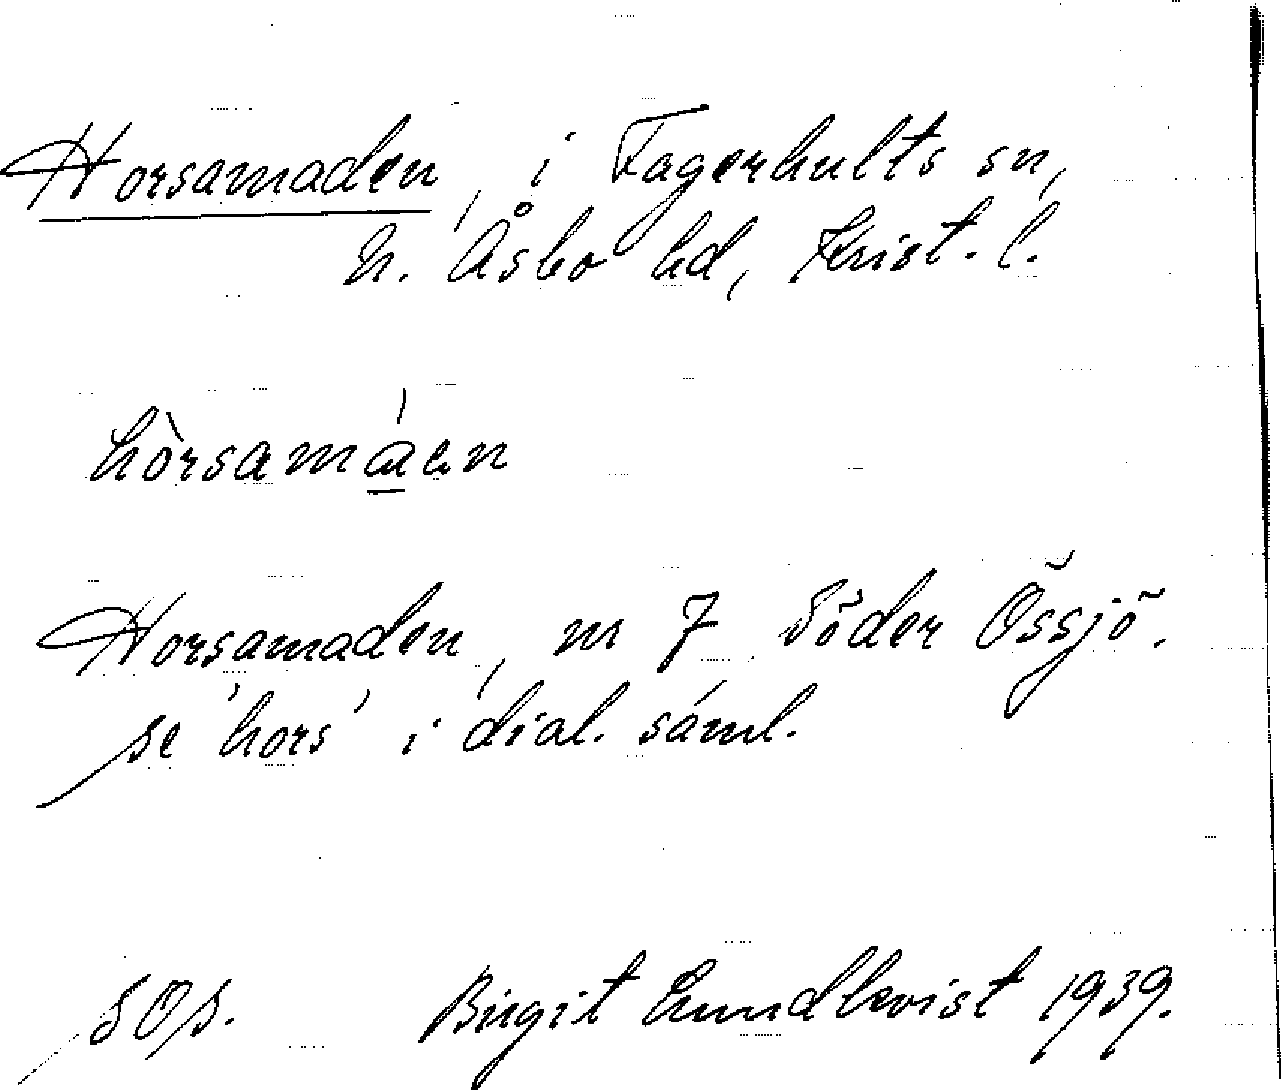 Horsamaden, i Fagerhults sn,
N. Åsbo hd, Krist. l.
hòrsamáen
Horsamaden, m 7 Söder Össjö.
se 'hors' i dial. saml.
Birgit Lundkvist 1939.